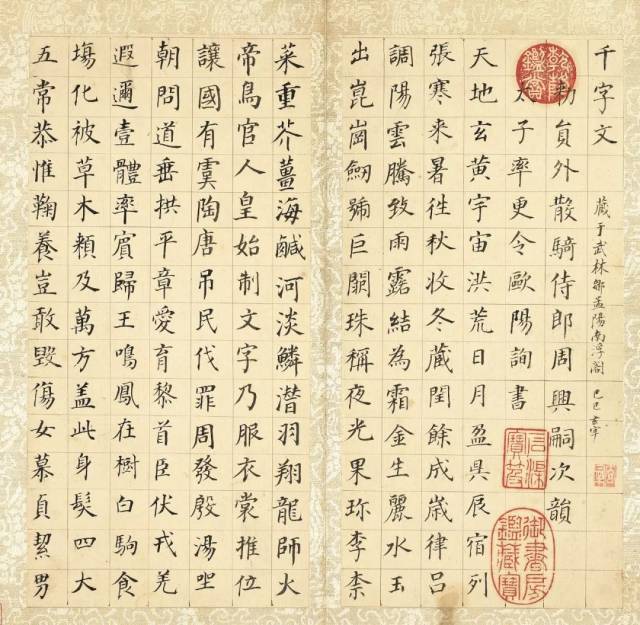 千字文
藏于武林鄒孟陽南浮閣 己巳 玄宰
勅員外散騎侍郎周興嗣次韻
太子率更令歐陽詢書
天地玄黃宇宙洪荒日月盈昃辰宿列
張寒來暑往秋收冬藏閏餘成歲律呂
調陽雲騰致雨露結為霜金生麗水玉
出崑崗劒號巨闕珠稱夜光果珎李柰
菜重芥薑海鹹河淡鱗潛羽翔龍師火
帝鳥官人皇始制文字乃服衣裳推位
讓國有虞陶唐吊民伐罪周發殷湯坐
朝問道垂拱平章愛育黎首臣伏戎羌
遐邇壹體率賓歸王鳴鳳在樹白駒食
塲化被草木賴及萬方盖此身髮四大
五常恭惟鞠養豈敢毀傷女慕貞絜男
乾隆鑑賞
石渠寶笈
御書房鑑藏寶